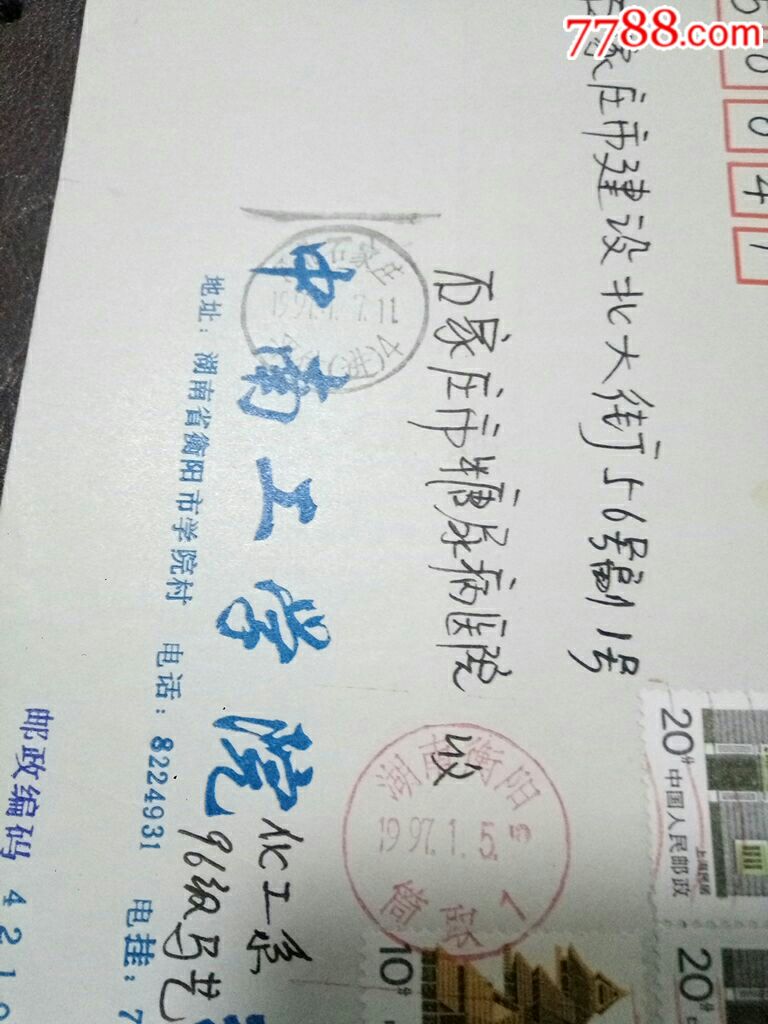 7788.com
50041
石家庄市建设北大街56号副1号
石家庄市糖尿病医院 收
石家庄
1997.1.7.11
中南工学院
化工系
96级马艺
地址：湖南省衡阳市学院村 电话：8224931 电挂：7
邮政编码 4210
湖南衡阳
1997.1.5
20分
中国人民邮政
上海民居
20分
10分